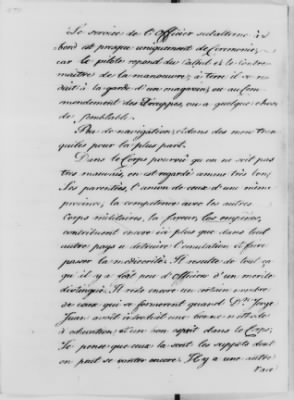 Le service de l'Officier subalterne à
bord est presque uniquement de Ceremonie,
car le pilote repond du calcul et le contre
maître de la manoeuvre; à terre il se re
duit à la garde d'un magazin, ou au Com
mendement des Trouppes, ou a quelque chose
de semblable.
Peu de navigation, et dans des mers tran
quiles pour la plus part.
Dans le Corps pourvû qu'on ne soit pas
très mauvais, on est regardé comme très bon;
Les parentées, l'union de ceux d'un même
province, la competence avec les autres
Corps militaires, la faveur, les
contribuent encore ici plus que dans tout
autre pays a detruire l'emulation et faire
passer la mediocrité. Il resulte de tout ça
qu'il y a fort peu d'Officiers d'un merite
distingué. Il reste encore un certain nombre
de ceux qui se formerent quand Dn. Jorge
Juan avoit introduit une bonne methode
d'education, et un bon esprit dans le Corps;
Je pense que ceux la sont les suppots dont
on peut se vanter encore. Il y a une autre